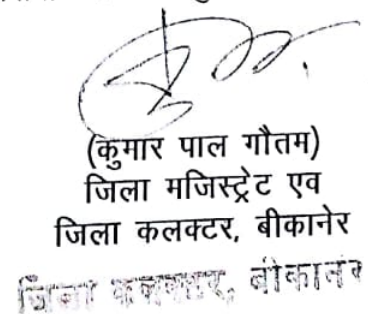 (कुमार पाल गौतम)
जिला मजिस्ट्रेट एव
जिला कलक्टर, बीकानेर
जिला कलक्टर, बीकानेर